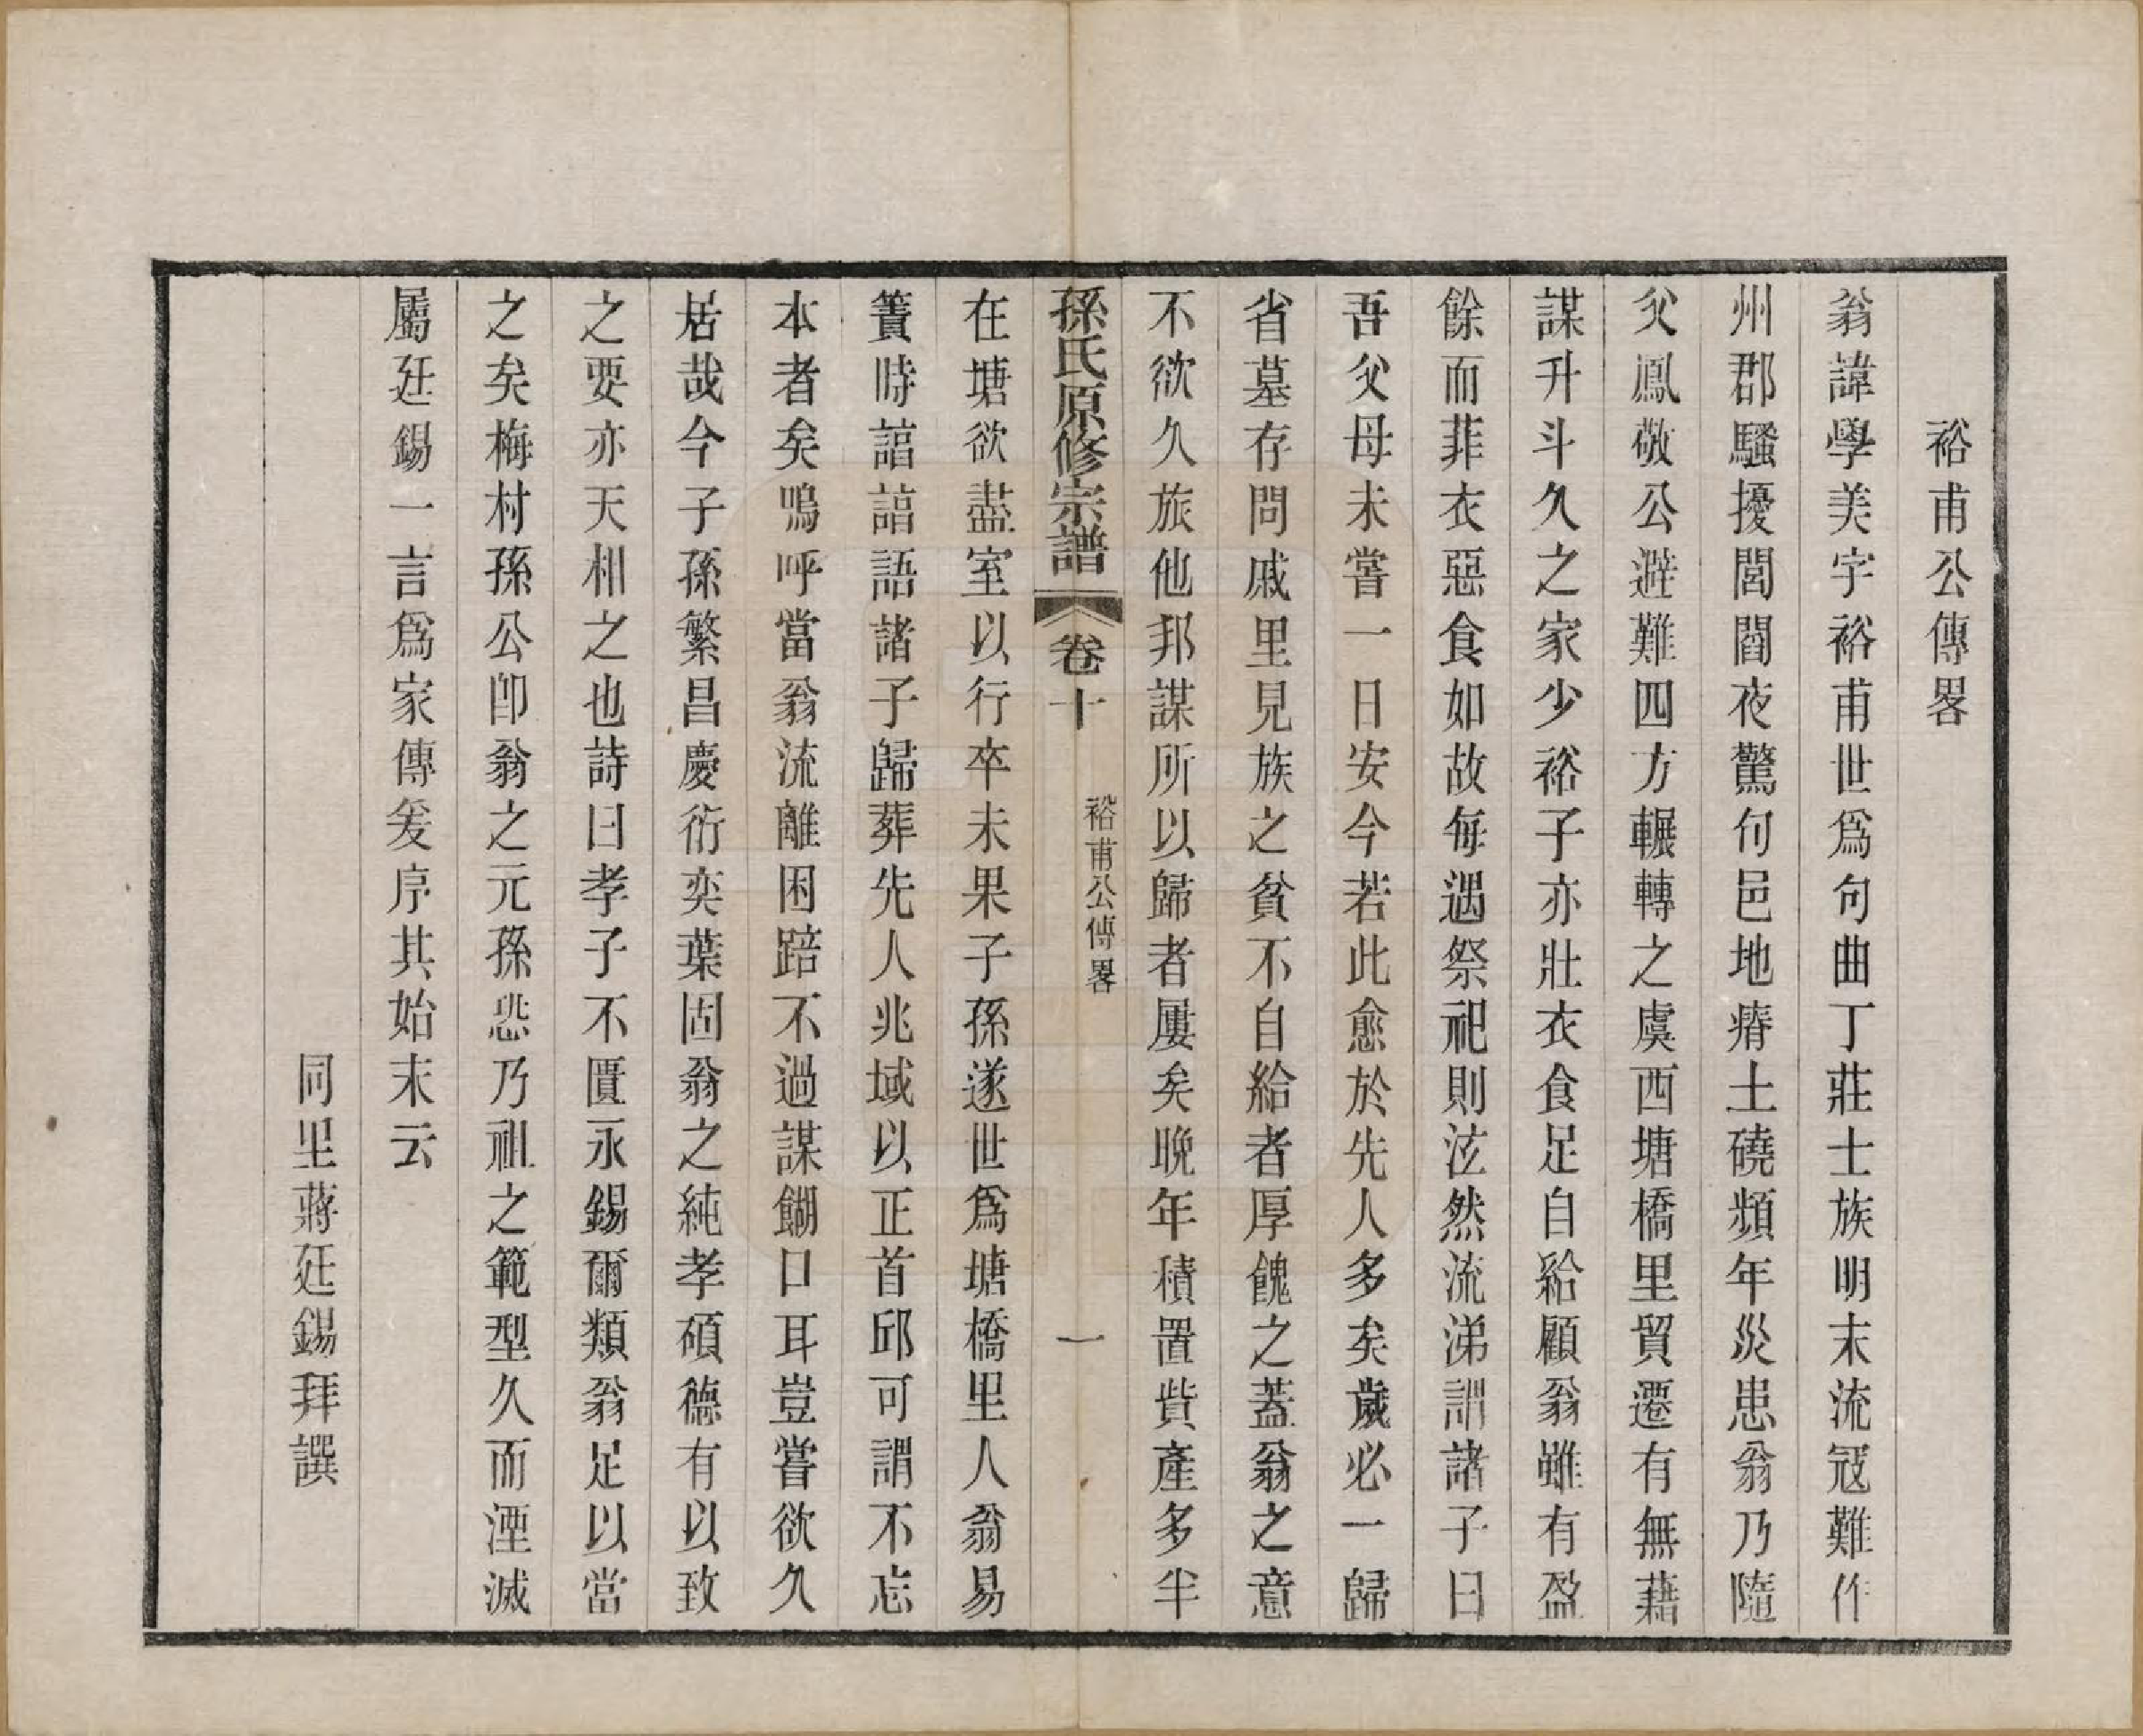 裕甫公傳畧
翁諱學美字裕甫世爲句曲丁莊士族明末流冦難作
州郡騷擾閭閻夜驚句邑地瘠土磽頻年災患翁乃隨
父鳳敬公避難四方輾轉之虞西塘橋里貿遷有無藉
謀升斗久之家少裕子亦壯衣食足自給顧翁雖有盈
餘而菲衣惡食如故每遇祭祀則泫然流涕謂諸子曰
吾父母未嘗一日安今若此愈於先人多矣歲必一歸
省墓存問戚里見族之貧不自給者厚餽之蓋翁之意
不欲久旅他邦謀所以歸者屢矣晚年積置貲產多半
孫氏原修宗譜 卷十 裕甫公傳畧 一
在塘欲盡室以行卒未果子孫遂世爲塘橋里人翁易
簀時諳諳語諸子歸葬先人兆域以正首邱可謂不忘
本者矣嗚呼當翁流離困踣不過謀餬口耳豈嘗欲久
居哉今子孫繁昌慶衍奕葉固翁之純孝碩德有以致
之要亦天相之也詩曰孝子不匱永錫爾類翁足以當
之矣梅村孫公卽翁之元孫恐乃祖之範型久而湮滅
屬廷錫一言爲家傳爰序其始末云
同里蔣廷錫拜譔